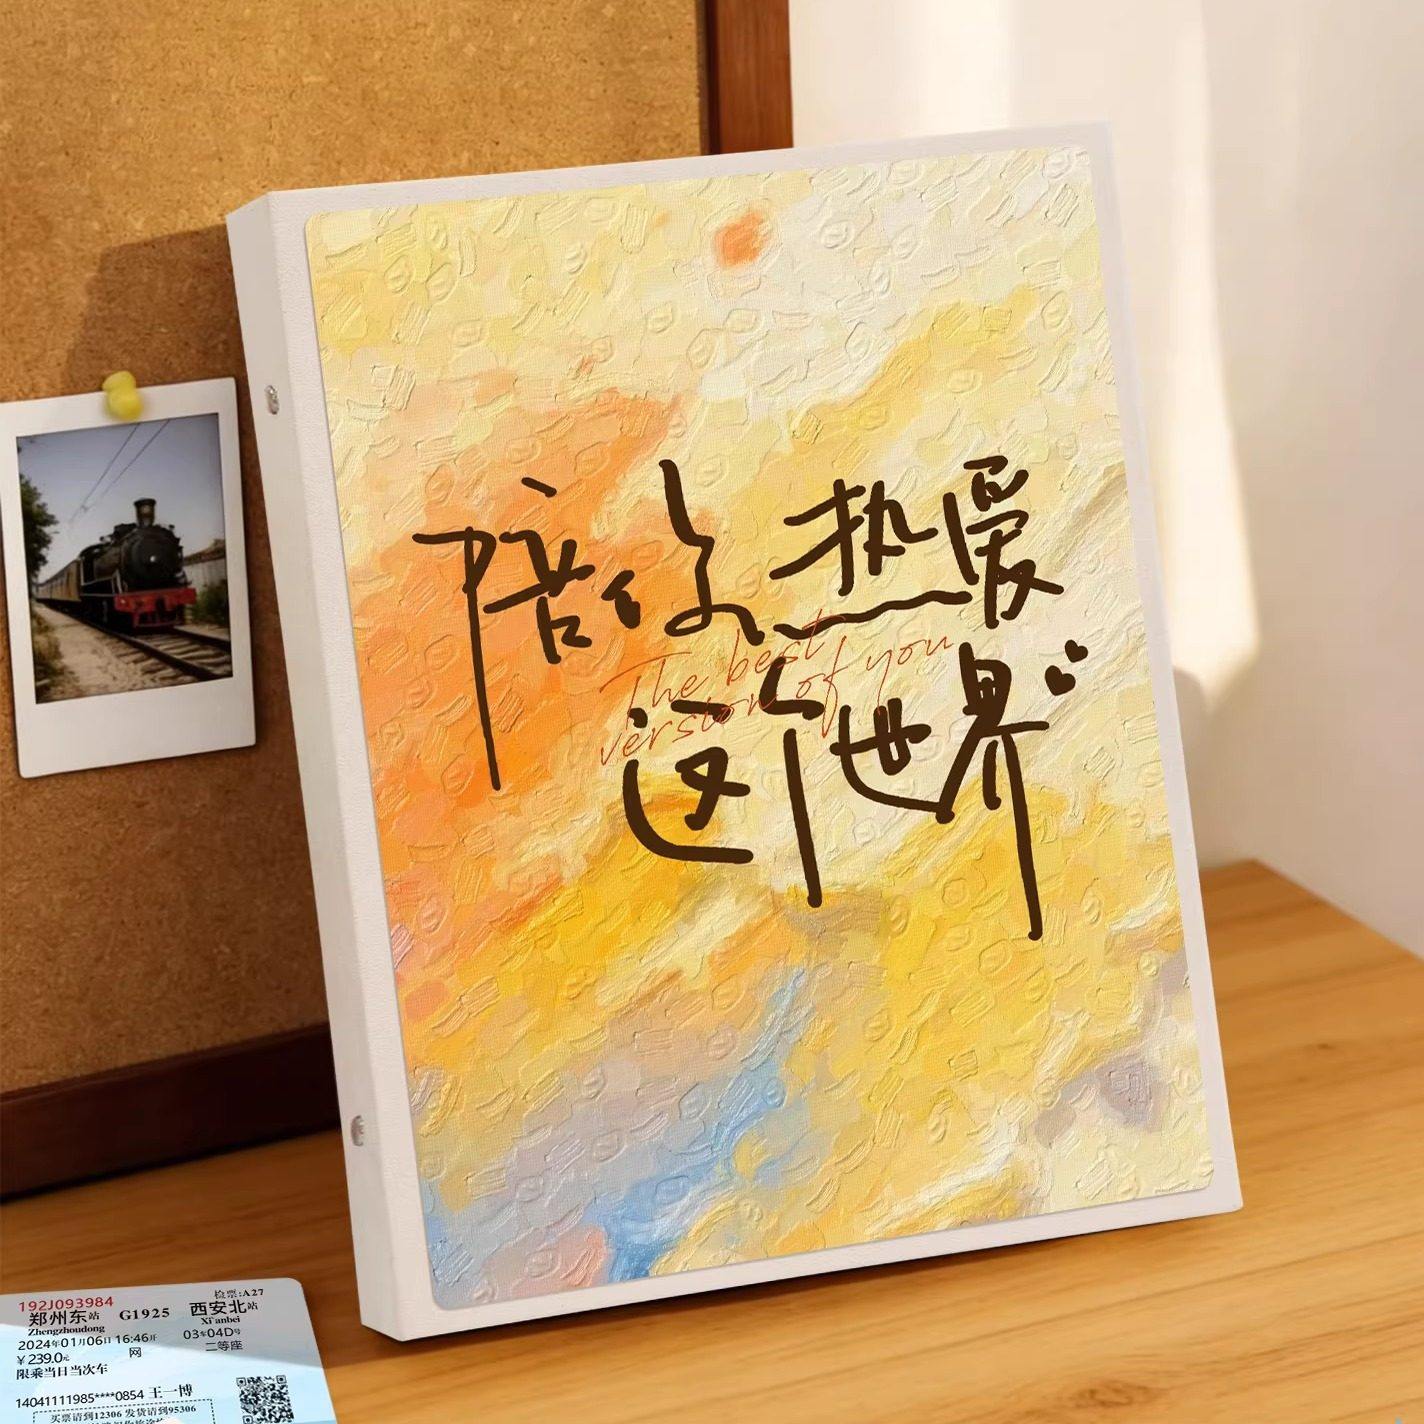 陪你热爱
The best
version of you
这个世界
192J093984
检票:A27
郑州东站 G1925 西安北站
Zhengzhoudong Xi'anbei
2024年01月06日 16:46开 03车04D号
¥239.0元 网 二等座
限乘当日当次车
14041111985****0854 王一博
买票请到12306 发货请到95306